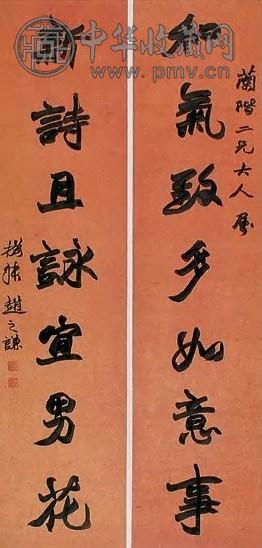 中华收藏网
www.pmv.cn
蘭階二兄大人屬
和氣致多如意事
新詩且詠宜男花
撝叔趙之謙